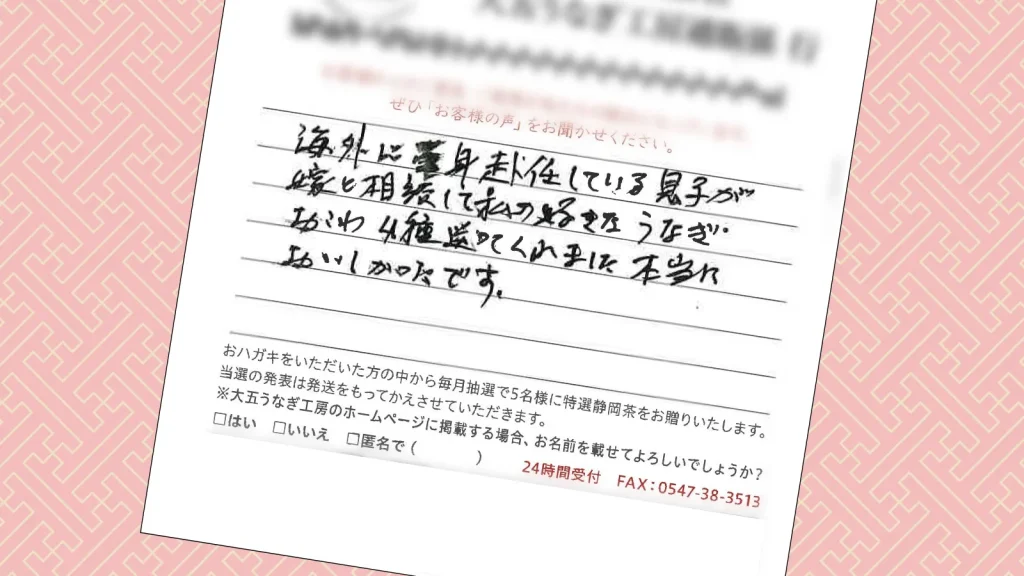 大五うなぎ工房通販係 行
ぜひ「お客様の声」をお聞かせください。
海外に単身赴任している息子が
嫁と相談して私の好きなうなぎ
おこわ4種送ってくれました 本当に
おいしかったです。
おハガキをいただいた方の中から毎月抽選で5名様に特選静岡茶をお贈りいたします。
当選の発表は発送をもってかえさせていただきます。
※大五うなぎ工房のホームページに掲載する場合、お名前を載せてよろしいでしょうか？
□はい □いいえ □匿名で（ ）
24時間受付 FAX：0547-38-3513